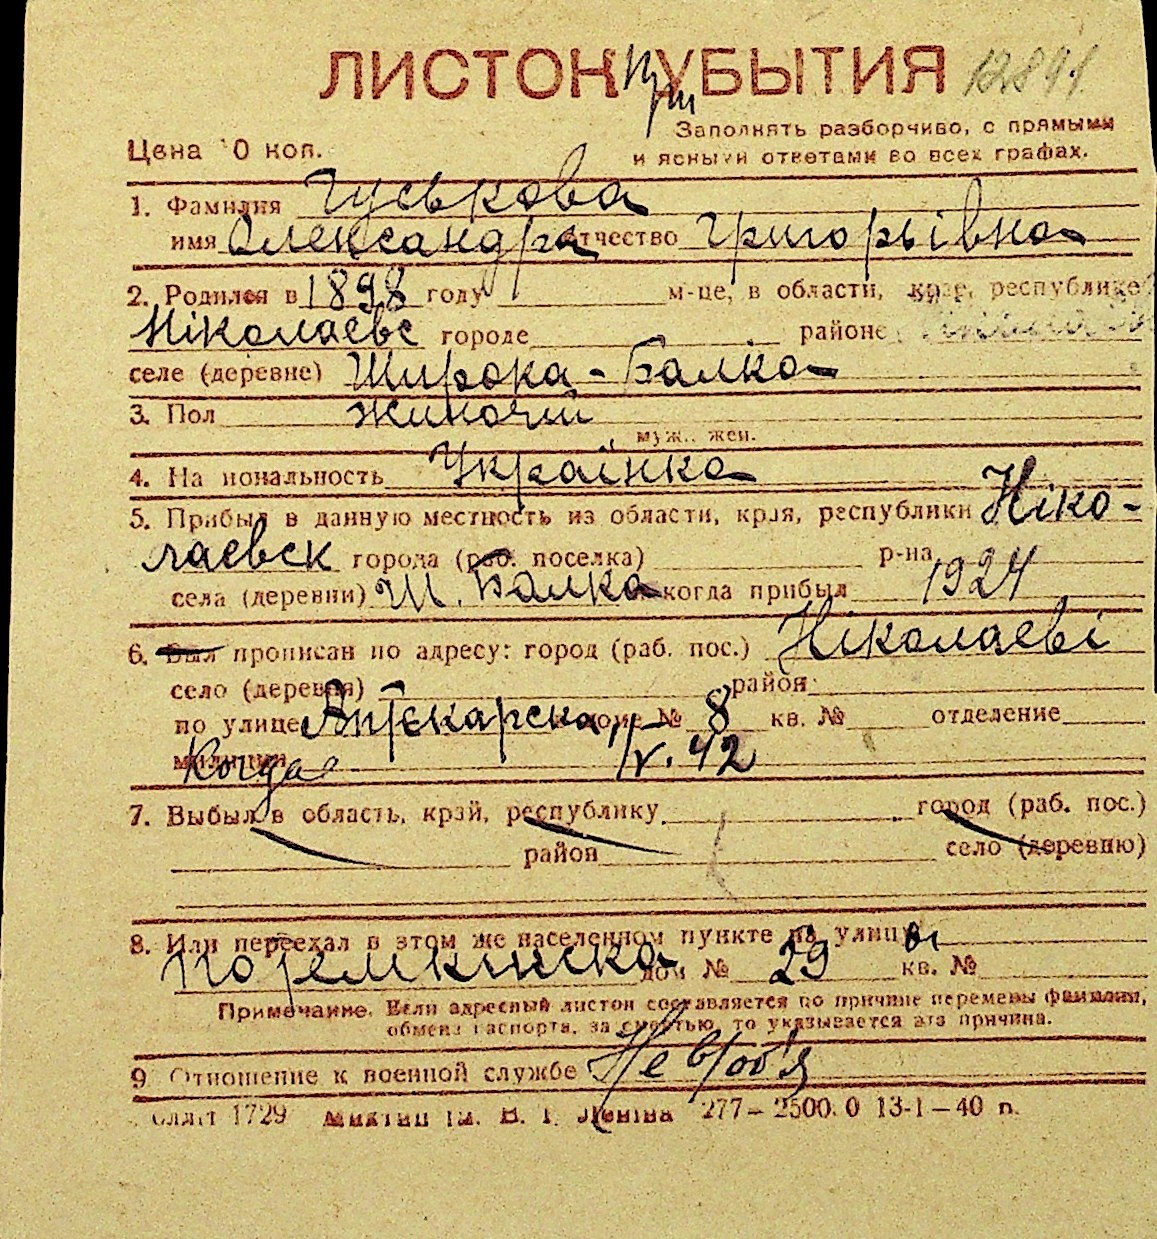 ЛИСТОК при УБЫТИЯ 12891
Заполнять разборчиво, с прямыми
Цена 10 коп. и ясными ответами во всех графах.
1. Фамилия Гуськова
имя Олександра отчество Григорьівна
2. Родился в 1898 году м-це, в области, крае, республике
Ніколаеве городе районе
селе (деревне) Широка-Балка
3. Пол жиночий
муж., жен.
4. Национальность Українка
5. Прибыл в данную местность из области, края, республики Ніко-
лаевск города (раб. поселка) р-на
села (деревни) Ш. Балка когда прибыл 1924
6. Был прописан по адресу: город (раб. пос.) Ніколаеві
село (деревня) район
по улице Аптекарска, доме № 8 кв. № отделение
милиции Когда IV. 42
7. Выбыл в область, край, республику город (раб. пос.)
район село (деревню)
8. Или переехал в этом же населенном пункте на улицу
Потемкинска дом № 29 кв. №
Примечание. Если адресный листок составляется по причине перемены фамилии,
обмена паспорта, за смертью, то указывается эта причина.
9 Отношение к военной службе Не в/об'я
1729 ім. В. І. Леніна 277—2500.0 13-1—40 п.